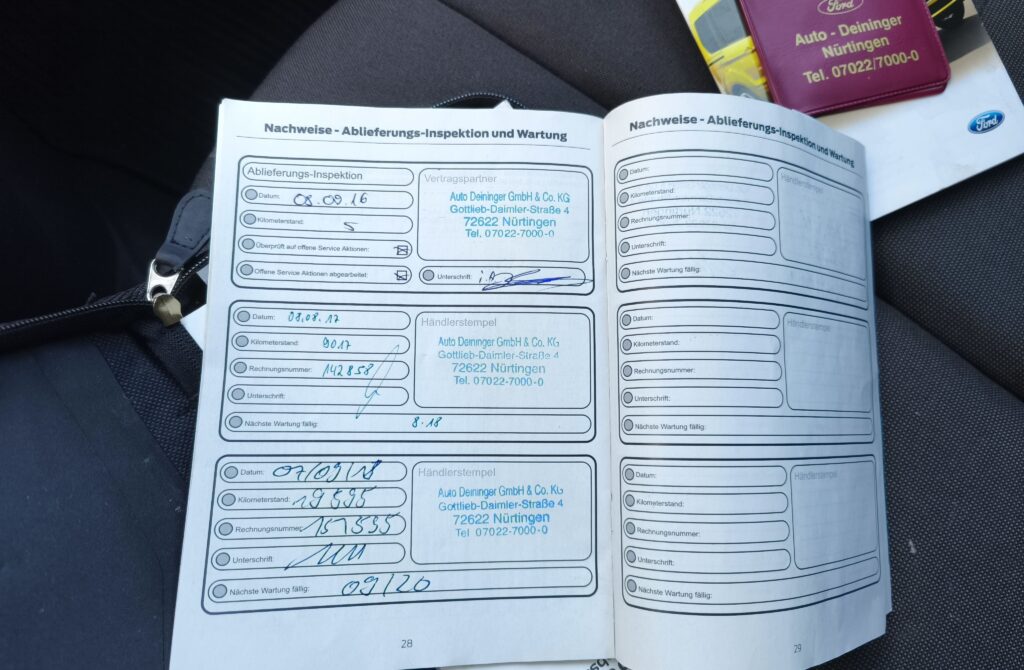 Ford
Auto - Deininger
Nürtingen
Tel. 07022/7000-0
Ford
Nachweise - Ablieferungs-Inspektion und Wartung
Ablieferungs-Inspektion
Datum: 08.09.16
Kilometerstand: 5
Überprüft auf offene Service Aktionen:
Offene Service Aktionen abgearbeitet:
Vertragspartner
Auto Deininger GmbH & Co. KG
Gottlieb-Daimler-Straße 4
72622 Nürtingen
Tel. 07022-7000-0
Unterschrift: i.A.
Datum: 08.08.17
Kilometerstand: 9017
Rechnungsnummer: 142858
Unterschrift:
Nächste Wartung fällig: 8-18
Händlerstempel
Auto Deininger GmbH & Co. KG
Gottlieb-Daimler-Straße 4
72622 Nürtingen
Tel. 07022-7000-0
Datum: 07/09/18
Kilometerstand: 19595
Rechnungsnummer: 151535
Unterschrift:
Nächste Wartung fällig: 09/20
Händlerstempel
Auto Deininger GmbH & Co. KG
Gottlieb-Daimler-Straße 4
72622 Nürtingen
Tel 07022-7000-0
28
Nachweise - Ablieferungs-Inspektion und Wartung
Datum:
Kilometerstand:
Rechnungsnummer:
Unterschrift:
Nächste Wartung fällig:
Händlerstempel
Datum:
Kilometerstand:
Rechnungsnummer:
Unterschrift:
Nächste Wartung fällig:
Händlerstempel
Datum:
Kilometerstand:
Rechnungsnummer:
Unterschrift:
Nächste Wartung fällig:
Händlerstempel
29